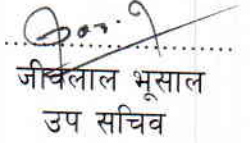 जीवलाल भूसाल
उप सचिव